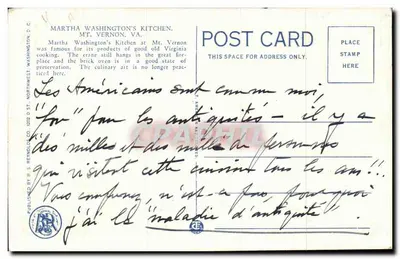 MARTHA WASHINGTON'S KITCHEN,
MT. VERNON, VA.
Martha Washington's Kitchen at Mt. Vernon
was famous for its products of good old Virginia
cooking. The crane still hangs in the great fire-
place and the brick oven is in a good state of
preservation. The culinary art is no longer prac-
ticed here.
POST CARD
THIS SPACE FOR ADDRESS ONLY.
PLACE
STAMP
HERE
Les Américains sont comme moi,
"fou" pour les antiquités — il y a
des milles et des mille de personnes
qui visitent cette cuisine tous les ans!!
Vous comprenez, n'est-ce pas, pourquoi
j'ai la "maladie d'antiquité".